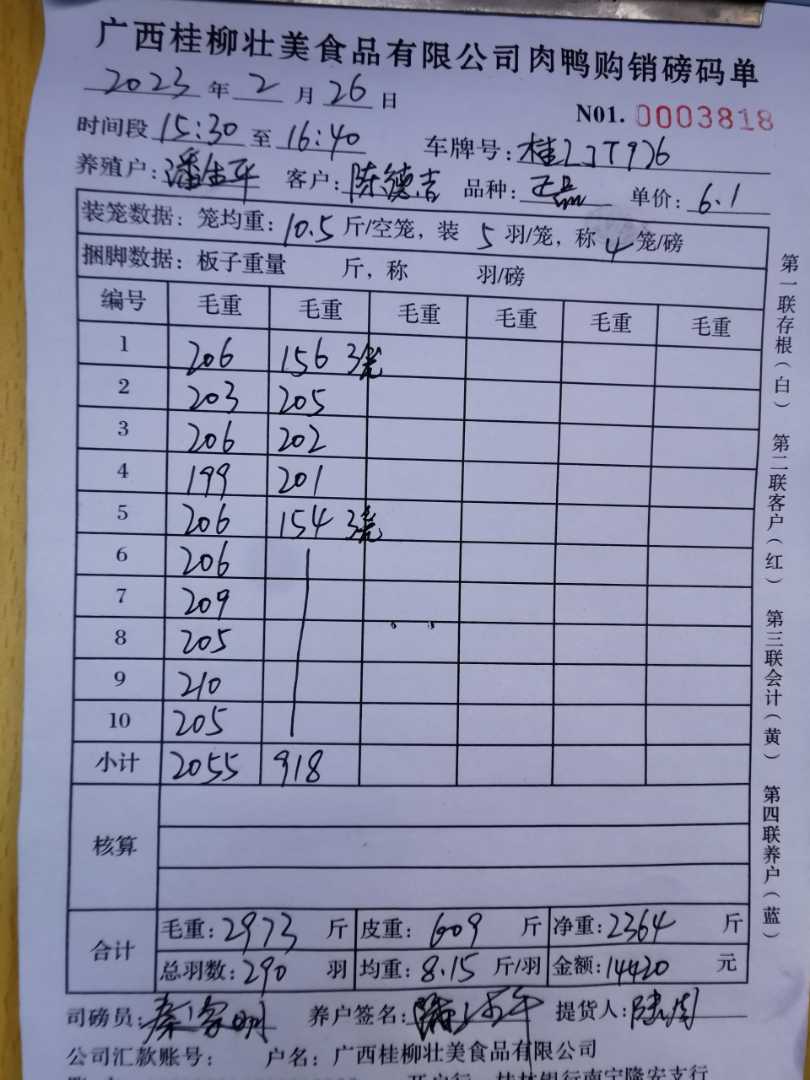 广西桂柳壮美食品有限公司肉鸭购销磅码单
2023 年 2 月 26 日
N01. 0003818
时间段 15:30 至 16:40 车牌号:
养殖户: 客户: 陈德吉 品种: 正品 单价: 6.1
装笼数据: 笼均重: 10.5 斤/空笼, 装 5 羽/笼, 称 4 笼/磅
捆脚数据: 板子重量 斤, 称 羽/磅
编号 毛重 毛重 毛重 毛重 毛重 毛重
1 206 156 3笼
2 203 205
3 206 202
4 199 201
5 206 154 3笼
6 206
7 209
8 205
9 210
10 205
小计 2055 918
核算
合计 毛重: 2973 斤 皮重: 609 斤 净重: 2364 斤
总羽数: 290 羽 均重: 8.15 斤/羽 金额: 14420 元
司磅员: 养户签名: 提货人:
公司汇款账号: 户名: 广西桂柳壮美食品有限公司
桂林银行南宁隆安支行
第一联存根(白) 第二联客户(红) 第三联会计(黄) 第四联养户(蓝)